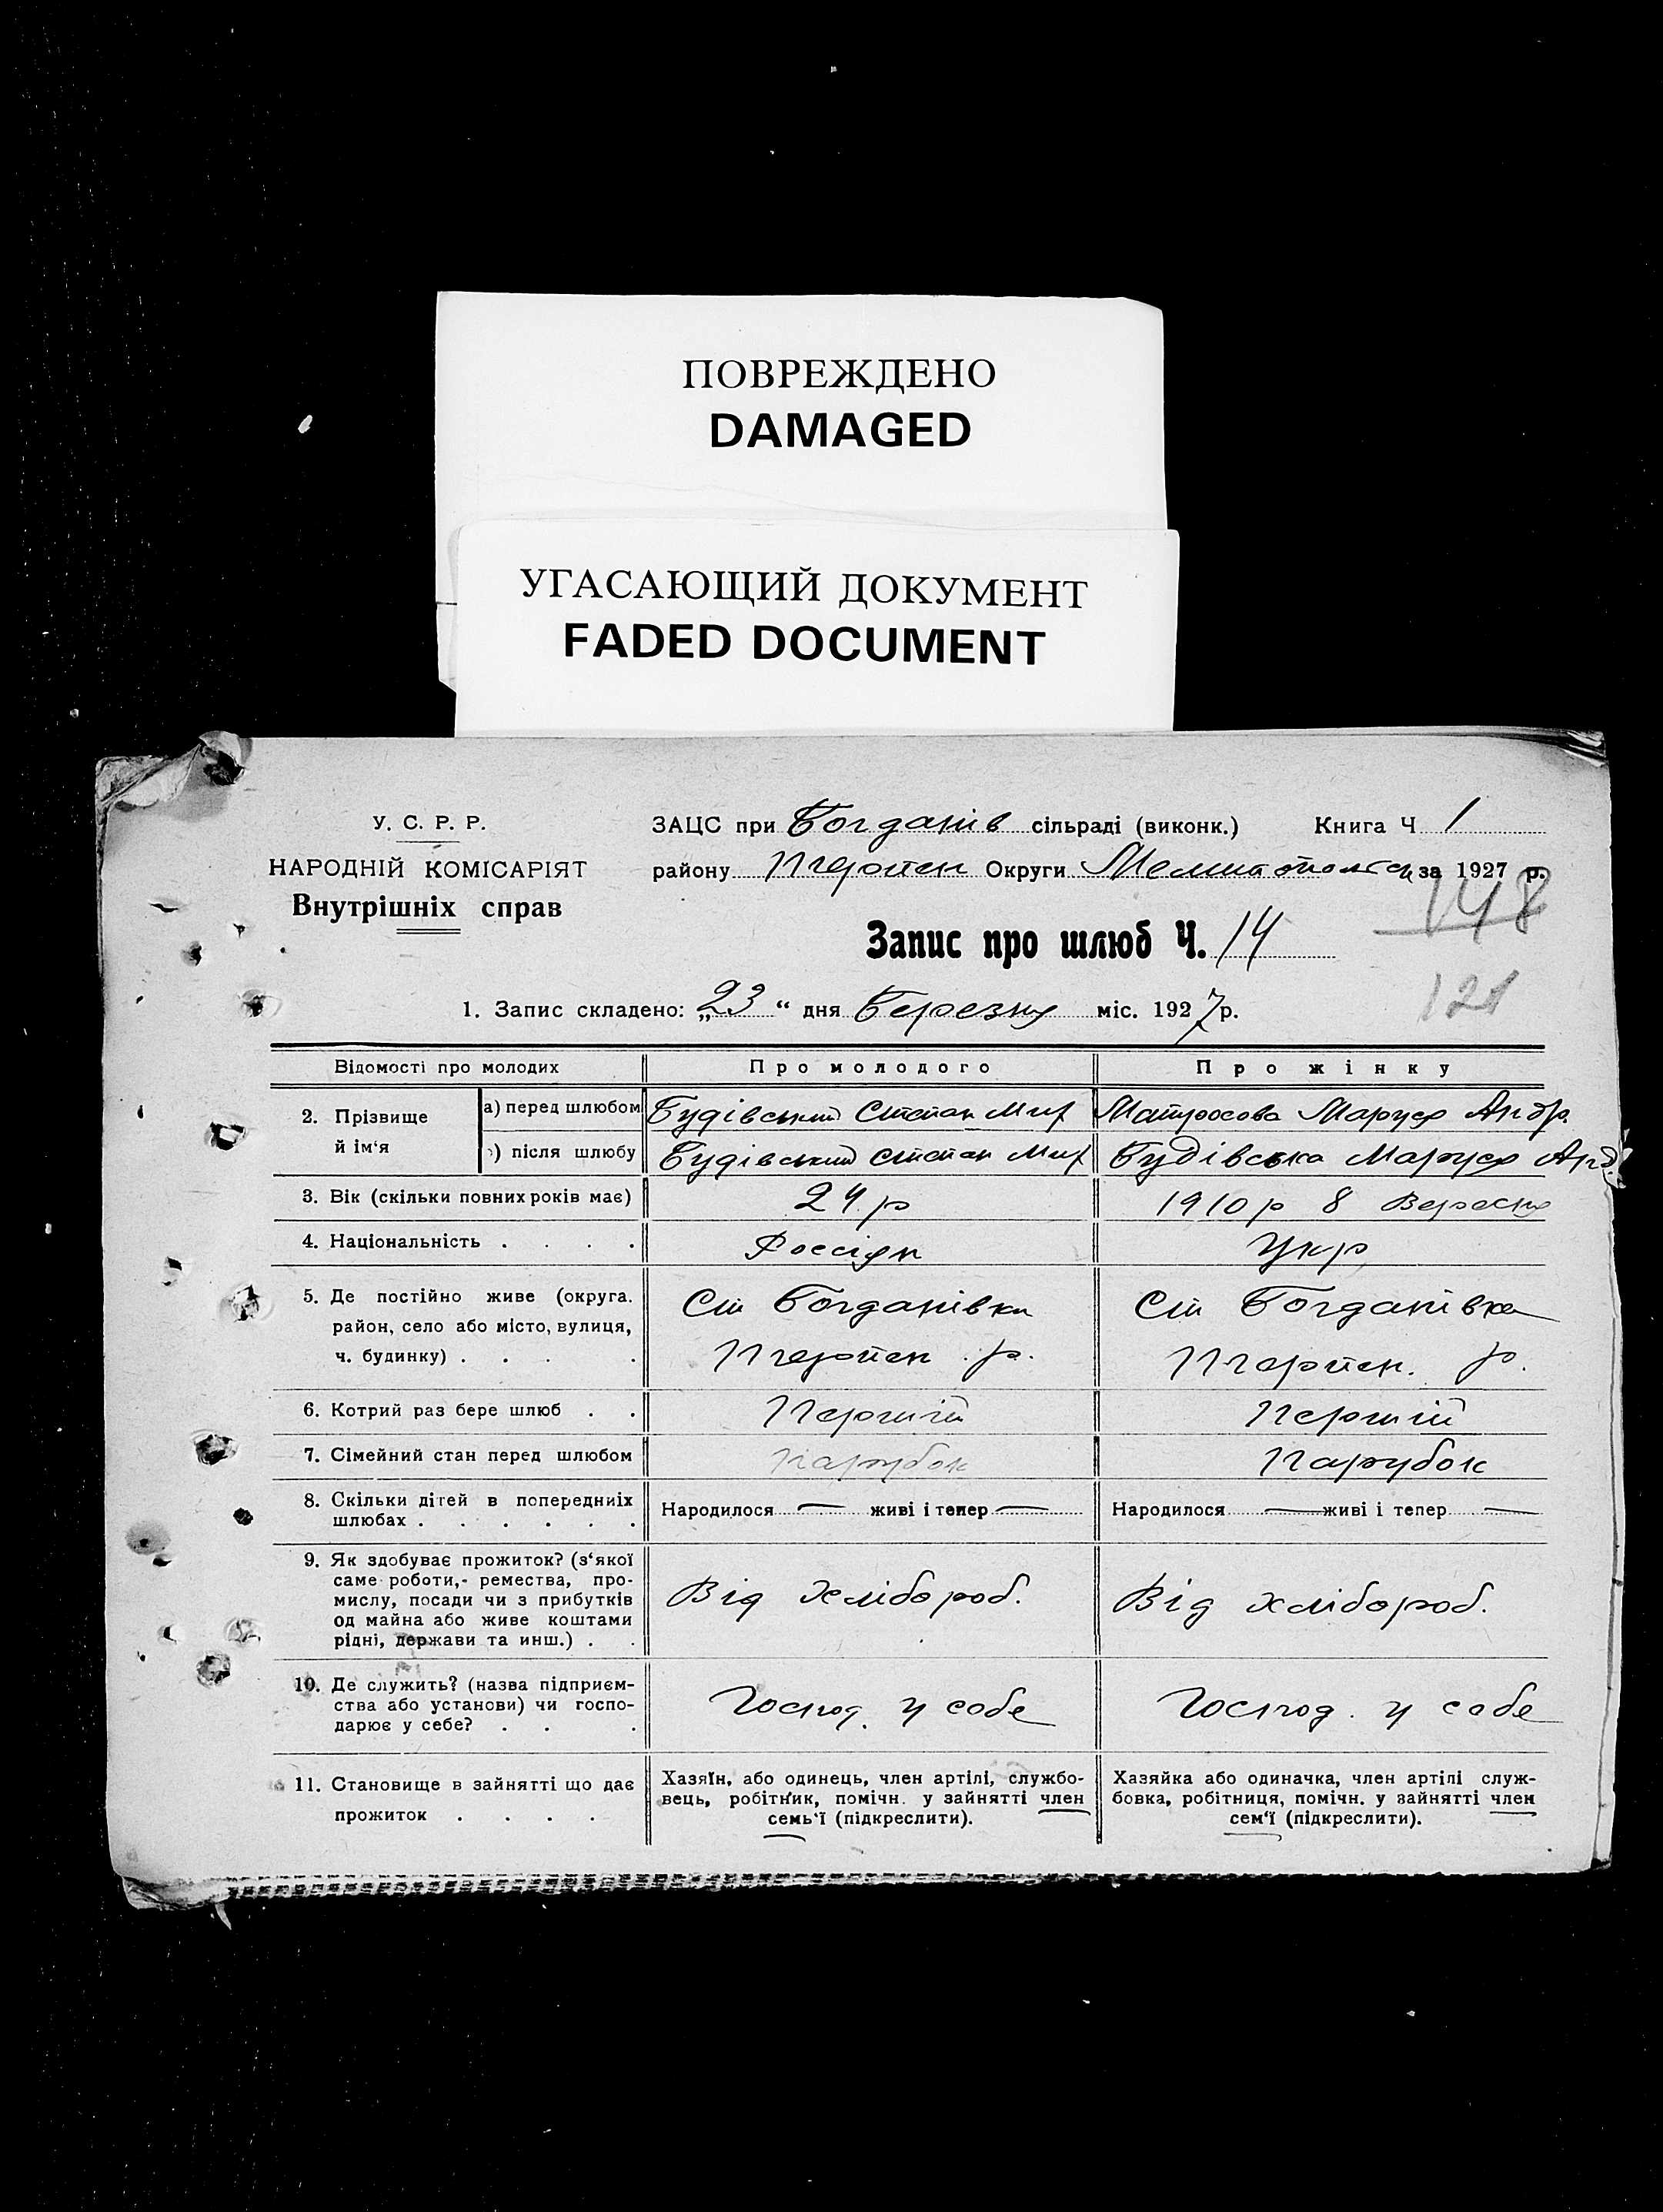 ПОВРЕЖДЕНО
DAMAGED
УГАСАЮЩИЙ ДОКУМЕНТ
FADED DOCUMENT
У. С. Р. Р.
НАРОДНІЙ КОМІСАРІЯТ
Внутрішніх справ
ЗАЦС при Богданів сільраді (виконк.) Книга Ч 1
району Округи за 1927 р.
148
Запис про шлюб Ч. 14
121
1. Запис складено: „23“ дня Березня міс. 1927 р.
Відомості про молодих Про молодого Про жінку
2. Прізвище й ім‘я
а) перед шлюбом Будівський Степан Мих Матросова Маруся Андр.
) після шлюбу Будівський Степан Мих Будівська Маруся Анд.
3. Вік (скільки повних років має) 24 р 1910 р 8 Вересня
4. Національність . . . . Россіян Укр
5. Де постійно живе (округа. Сіл Богданівки Сіл Богданівка
район, село або місто, вулиця,
ч. будинку) . . . . р. р.
6. Котрий раз бере шлюб . . Перший Перший
7. Сімейний стан перед шлюбом парубок Парубок
8. Скільки дітей в попередніх Народилося — живі і тепер — Народилося — живі і тепер —
шлюбах . . . . . .
9. Як здобуває прожиток? (з‘якої
саме роботи,- ремества, про-
мислу, посади чи з прибутків Від хлібороб. Від хлібороб.
од майна або живе коштами
рідні, держави та инш.) . .
10. Де служить? (назва підприєм-
ства або установи) чи госпо- Господ. у собе Господ. у собе
дарює у себе? . . .
11. Становище в зайнятті що дає
прожиток . . . .
Хазяїн, або одинець, член артілі, службо-
вець, робітник, помічн. у зайнятті член
семь‘ї (підкреслити).
Хазяйка або одиначка, член артілі служ-
бовка, робітниця, помічн. у зайнятті член
сем‘ї (підкреслити).